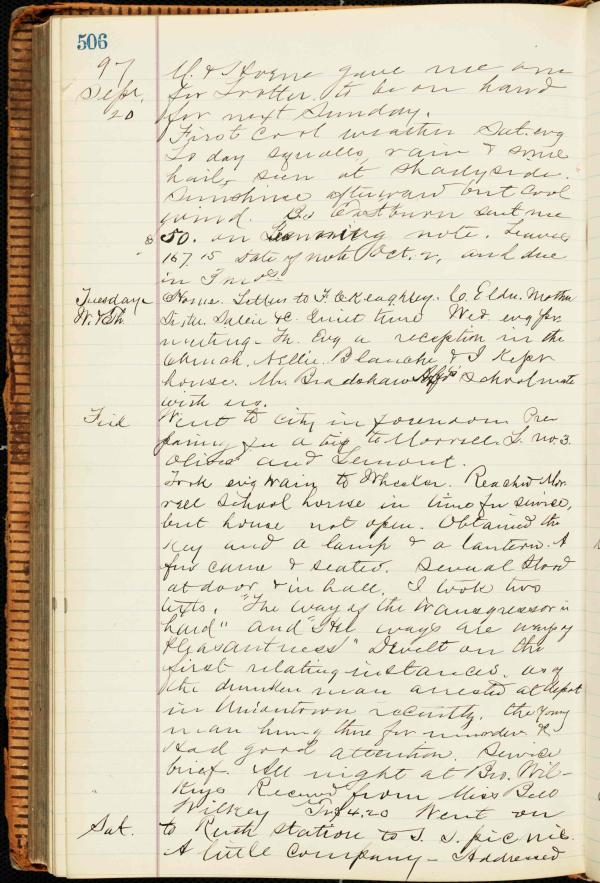 506
97 gave me one
Sept. for Trotter. to be on hand
20 for next Sunday.
First Cool weather Sat. evg
To day squalls, rain & some
hail, seen at Shadyside.
Sunshine afterward but cool
wind. Eastburn sent me
50. on note. Leaves
167.15 Date of note Oct. 2, and due
in
Tuesday Home. Letters to F. C. Keaghley. C. Eldr. Mother
W. & Th. Sister Sallie &c. Quiet time Wed. evg pr.
meeting - Th. Evg a reception in the
Church. Nellie Blanche & I Kept
house. Mr. Bradshaw School mate
with us.
Frid Went to city in forenoon Pre
paring for a trip to Morrell. S. no 3.
Olives and Lemont.
Took evg train to Wheeler. Reached Mor
rell School house in time for service,
but house not open. Obtained the
Key and a lamp & a lantern. A
few came & seated. Several stood
at door & in hall. I took two
texts, "The way of the transgressor is
hard" and "Her ways are ways of
Pleasantness" Dwelt on the
first relating instances. as of
the drunken man arrested at depot
in Uniontown recently, the young
man hung there for murder &c.
Had good attention. Service
brief. All night at Bro. Wil-
keys Received from Miss Bell
Wilkey $4.20 Went on
Sat. to Ruth station to S. S. pic nic.
A little company - Addressed